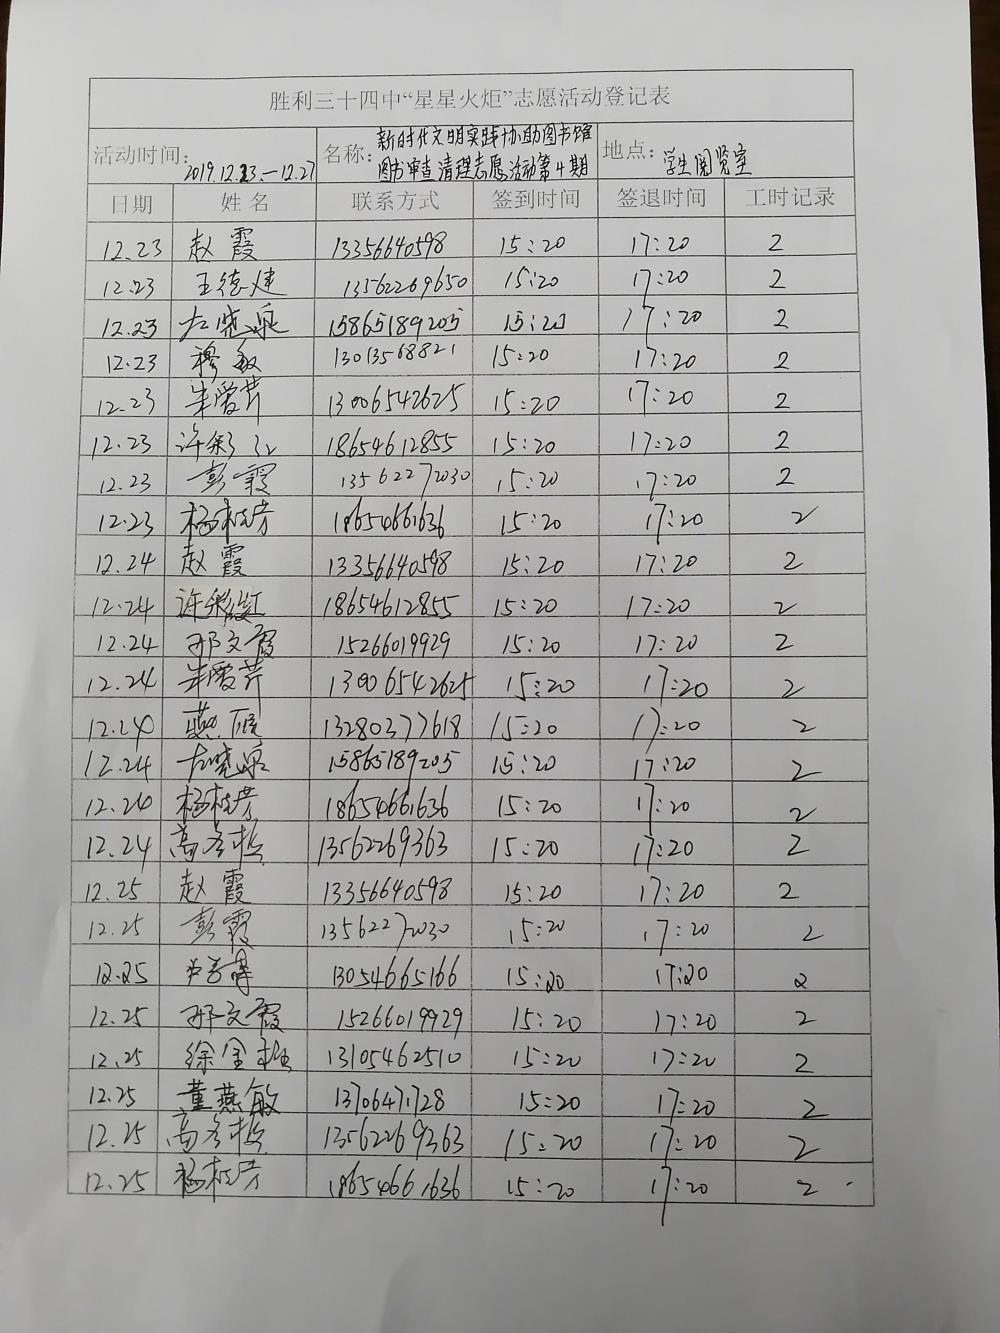 胜利三十四中“星星火炬”志愿活动登记表
活动时间: 2019.12.23.—12.27 名称: 新时代文明实践协助图书馆 地点: 学生阅览室
图书审查清理志愿活动第4期
日期 姓名 联系方式 签到时间 签退时间 工时记录
12.23 赵霞 13356640598 15:20 17:20 2
12.23 王德建 13562269650 15:20 17:20 2
12.23 左晓泉 15865189205 15:20 17:20 2
12.23 穆敏 13013568821 15:20 17:20 2
12.23 朱爱芹 13006542625 15:20 17:20 2
12.23 许彩红 18654612855 15:20 17:20 2
12.23 彭霞 13562272030 15:20 17:20 2
12.23 杨桂芳 18654661636 15:20 17:20 2
12.24 赵霞 13356640598 15:20 17:20 2
12.24 许彩红 18654612855 15:20 17:20 2
12.24 邢文霞 15266019929 15:20 17:20 2
12.24 朱爱芹 13006542625 15:20 17:20 2
12.24 燕 13280377618 15:20 17:20 2
12.24 左晓泉 15865189205 15:20 17:20 2
12.24 杨桂芳 18654661636 15:20 17:20 2
12.24 高 13562269363 15:20 17:20 2
12.25 赵霞 13356640598 15:20 17:20 2
12.25 彭霞 13562272030 15:20 17:20 2
12.25 13054665166 15:20 17:20 2
12.25 邢文霞 15266019929 15:20 17:20 2
12.25 徐金 13105462510 15:20 17:20 2
12.25 董燕敏 13706471728 15:20 17:20 2
12.25 高 13562269363 15:20 17:20 2
12.25 杨桂芳 18654661636 15:20 17:20 2